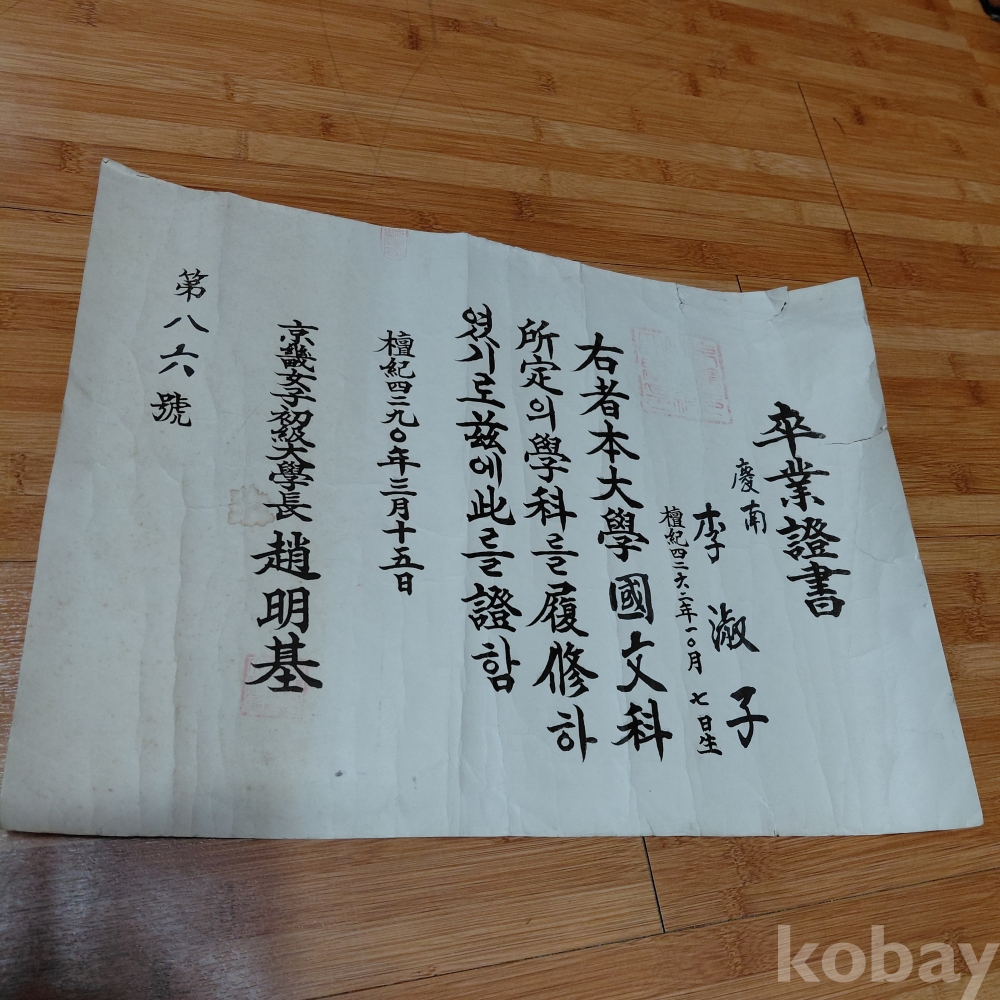 卒業證書
慶南
李淑子
檀紀四二六二年一〇月七日生
右者本大學國文科
所定의學科를履修하
였기로玆에此를證함
檀紀四二九〇年三月十五日
京畿女子初級大學長 趙明基
第八六號
kobay